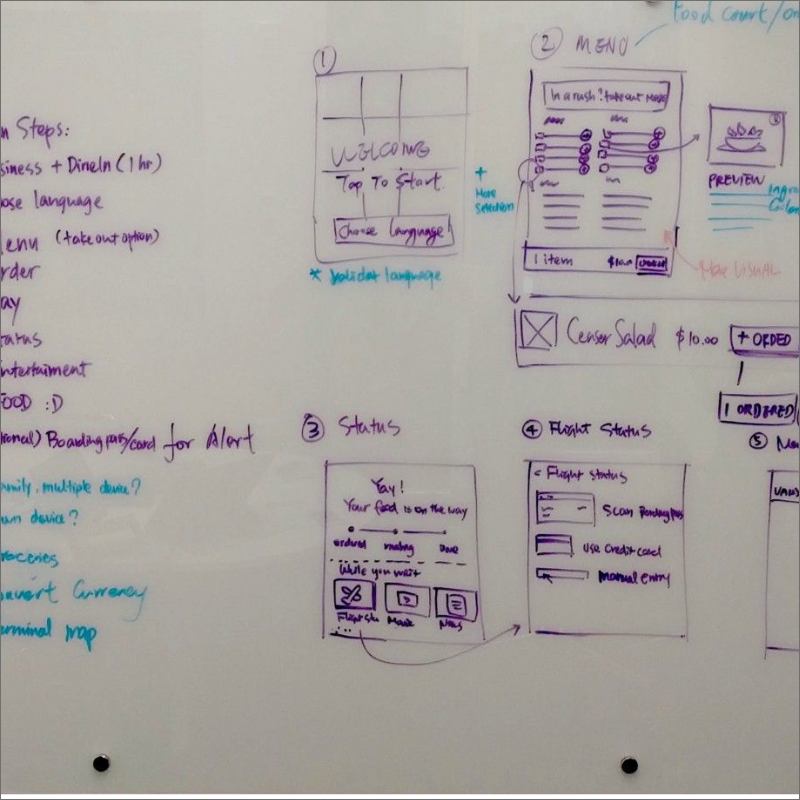 n Steps:
siness + DineIn (1 hr)
ose language
enu (take out option)
rder
ay
tatus
ntertaiment
FOOD :D
onal) Boarding pass/card for Alert
amily. multiple device?
wn device?
roceries
onvert Currency
erminal map
1
WELCOME
Tap To Start.
Choose Language
* Validate language
+
More
Selection
2 MENU
Food Court/on
In a rush? take out
1 item $10.0
PREVIEW
More VISUAL
Ceaser Salad $10.00 + ORDED
1 ORDERED
3 Status
Yay!
Your food is on the way
ordered making Done
While you wait
Flight Movie News
4 Flight Status
< Flight status
Scan Boarding pass
Use Credit card
Manual entry
5